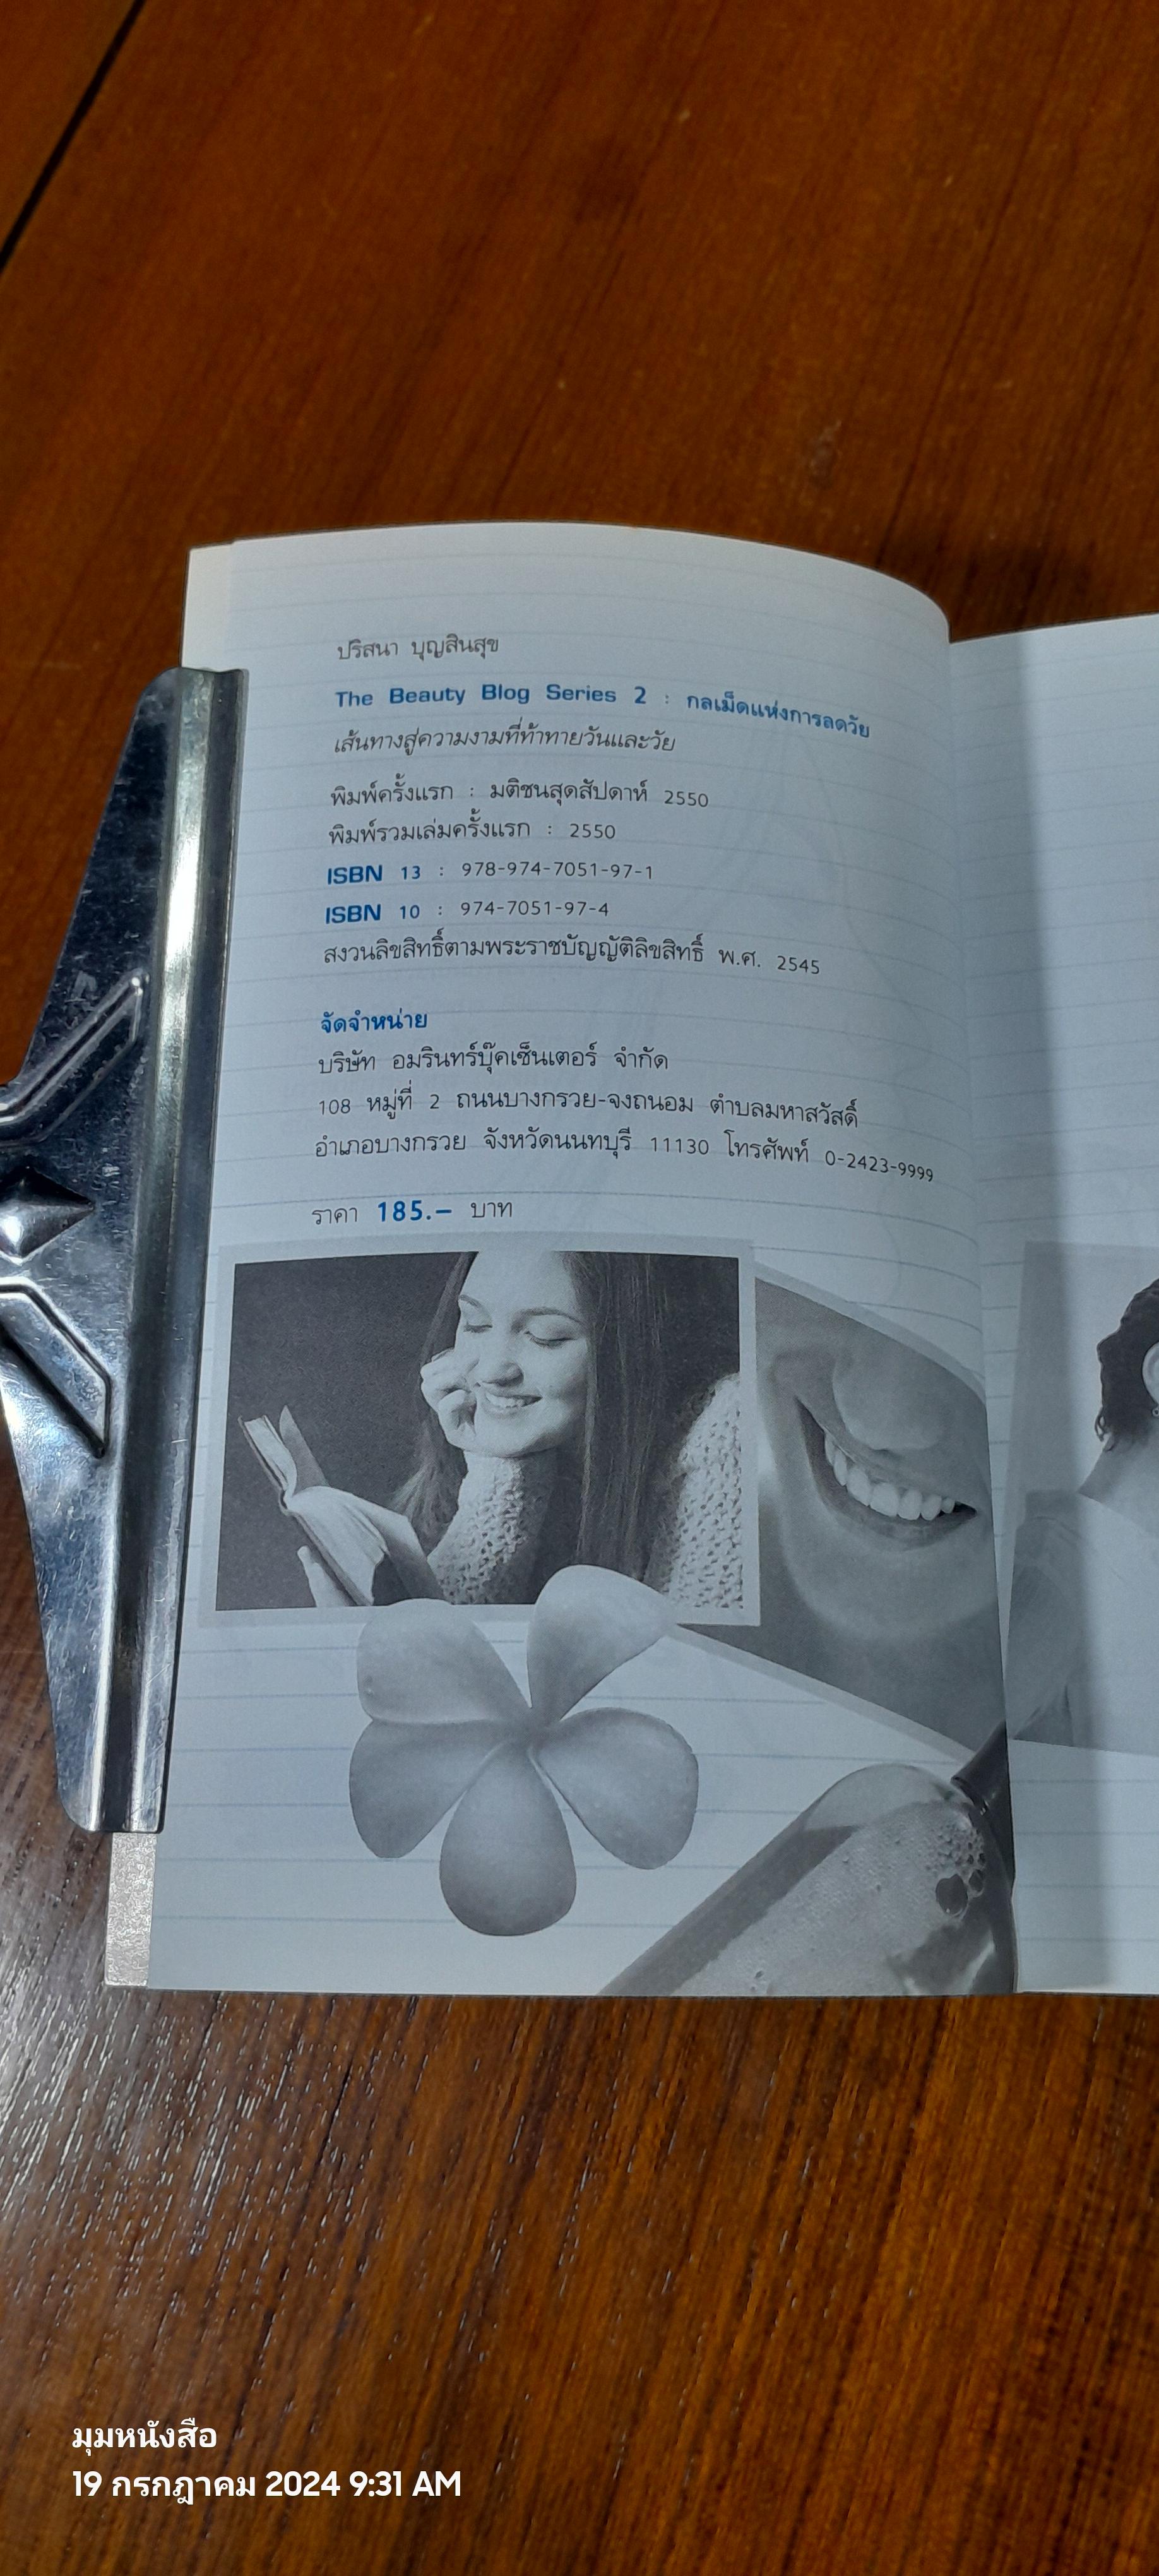 ปริสนา บุญสินสุข
The Beauty Blog Series 2 : กลเม็ดแห่งการลดวัย
เส้นทางสู่ความงามที่ท้าทายวันและวัย
พิมพ์ครั้งแรก : มติชนสุดสัปดาห์ 2550
พิมพ์รวมเล่มครั้งแรก : 2550
ISBN 13 : 978-974-7051-97-1
ISBN 10 : 974-7051-97-4
สงวนลิขสิทธิ์ตามพระราชบัญญัติลิขสิทธิ์ พ.ศ. 2545
จัดจำหน่าย
บริษัท อมรินทร์บุ๊คเซ็นเตอร์ จำกัด
108 หมู่ที่ 2 ถนนบางกรวย-จงถนอม ตำบลมหาสวัสดิ์
อำเภอบางกรวย จังหวัดนนทบุรี 11130 โทรศัพท์ 0-2423-9999
ราคา 185.– บาท
มุมหนังสือ
19 กรกฎาคม 2024 9:31 AM